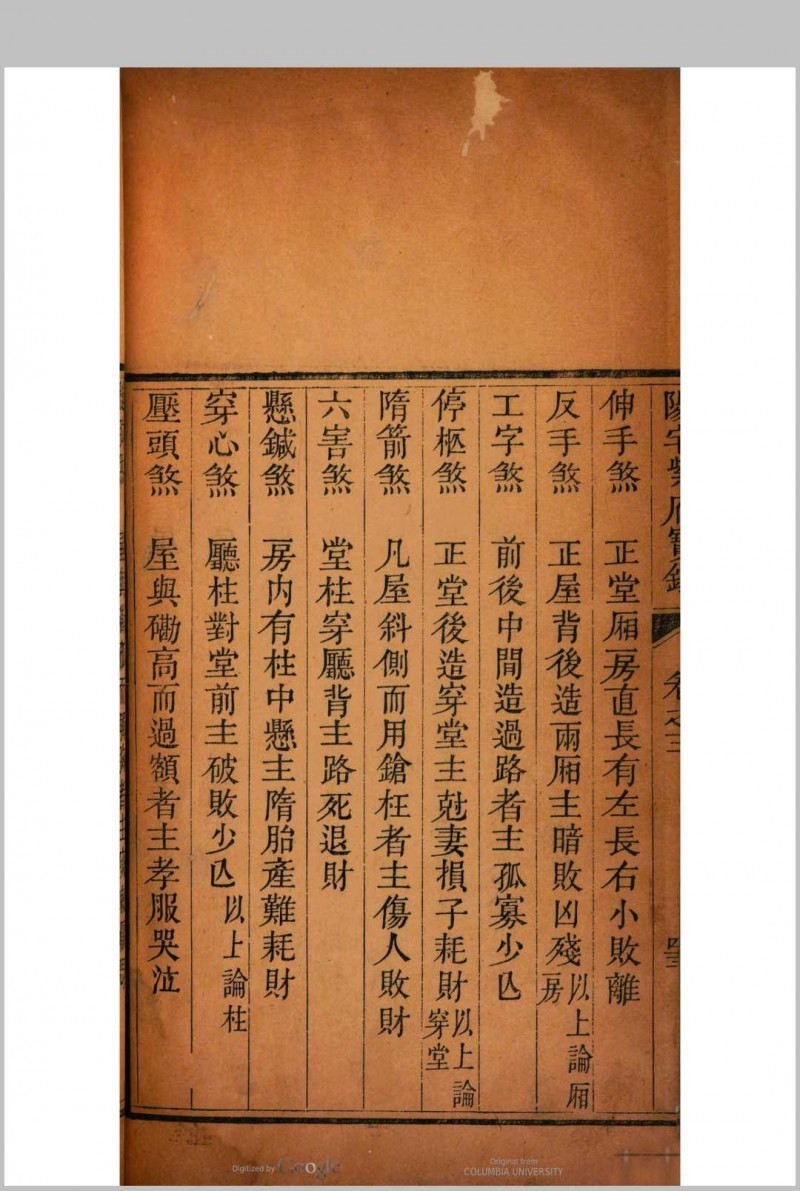 伸手煞　正堂厢房直長有左長右小敗離
反手煞　正屋背後造兩厢主暗敗凶殘以上論厢房
工字煞　前後中間造過路者主孤寡少亾
停柩煞　正堂後造穿堂主尅妻損子耗財以上論穿堂
隋箭煞　凡屋斜側而用鎗柱者主傷人敗財
六害煞　堂柱穿廳背主路死退財
懸鍼煞　房内有柱中懸主隋胎產難耗財
穿心煞　廳柱對堂前主破敗少亾以上論柱
壓頭煞　屋與磡高而過額者主孝服哭泣
Digitized by Google
Original from
COLUMBIA UNIVERSITY